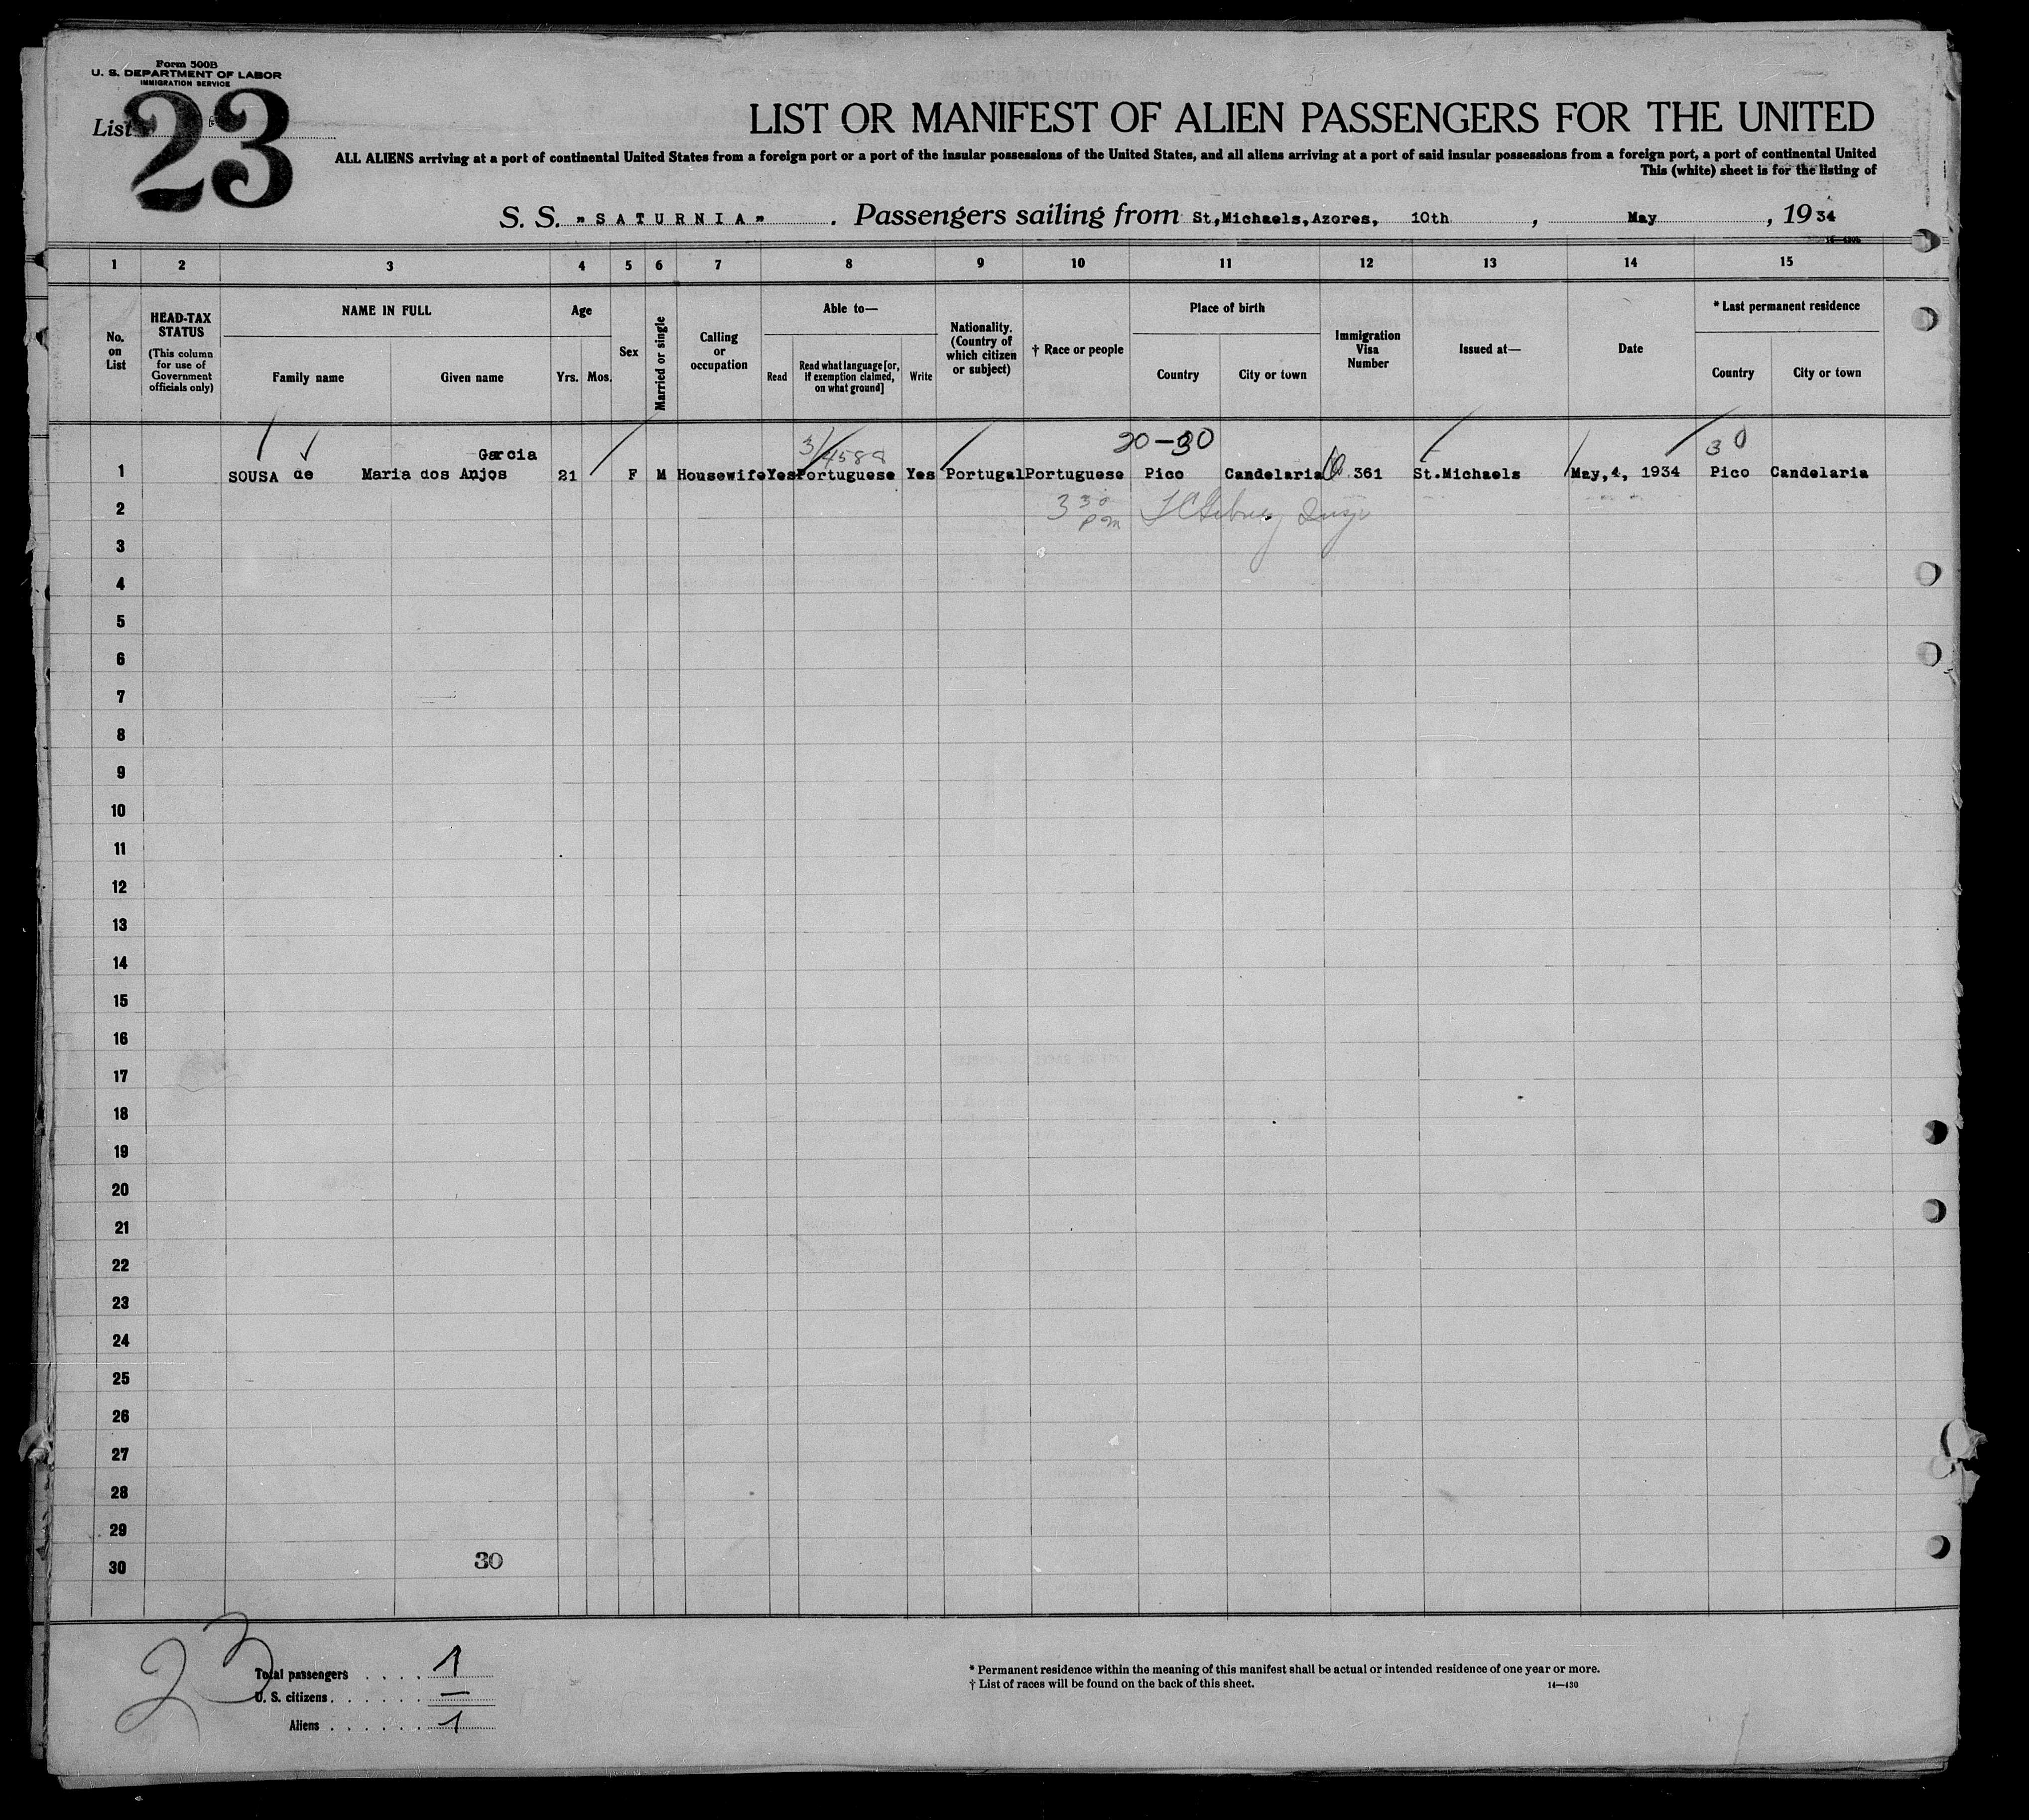 Form 500B
U. S. DEPARTMENT OF LABOR
IMMIGRATION SERVICE
List 23
LIST OR MANIFEST OF ALIEN PASSENGERS FOR THE UNITED
ALL ALIENS arriving at a port of continental United States from a foreign port or a port of the insular possessions of the United States, and all aliens arriving at a port of said insular possessions from a foreign port, a port of continental United
This (white) sheet is for the listing of
S. S. "SATURNIA". Passengers sailing from St,Michaels,Azores, 10th, May, 19 34
1 2 3 4 5 6 7 8 9 10 11 12 13 14 15
No. on List
HEAD-TAX STATUS (This column for use of Government officials only)
NAME IN FULL
Family name
Given name
Age
Yrs. Mos.
Sex
Married or single
Calling or occupation
Able to—
Read
Read what language [or, if exemption claimed, on what ground]
Write
Nationality. (Country of which citizen or subject)
† Race or people
Place of birth
Country
City or town
Immigration Visa Number
Issued at—
Date
* Last permanent residence
Country
City or town
20-30
30
Garcia
1 SOUSA de Maria dos Anjos 21 F M Housewife Yes Portuguese Yes Portugal Portuguese Pico Candelaria 361 St.Michaels May,4, 1934 Pico Candelaria
2 3 30 pm
3
4
5
6
7
8
9
10
11
12
13
14
15
16
17
18
19
20
21
22
23
24
25
26
27
28
29
30 30
23
Total passengers . . . . 1
U. S. citizens . . . . . . —
Aliens . . . . . . 1
* Permanent residence within the meaning of this manifest shall be actual or intended residence of one year or more.
† List of races will be found on the back of this sheet.
14—430